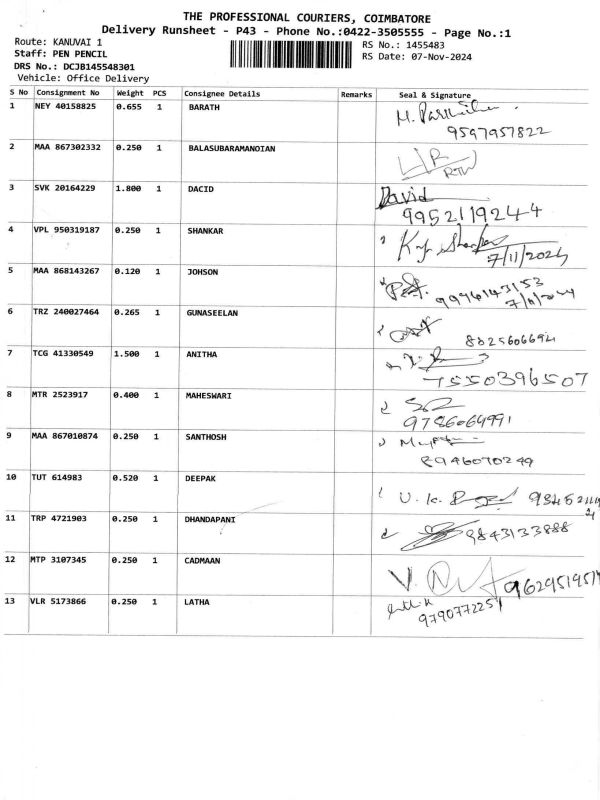 THE PROFESSIONAL COURIERS, COIMBATORE
Delivery Runsheet - P43 - Phone No.:0422-3505555 - Page No.:1
Route: KANUVAI 1
RS No.: 1455483
Staff: PEN PENCIL
RS Date: 07-Nov-2024
DRS No.: DCJB145548301
Vehicle: Office Delivery
S No Consignment No Weight PCS Consignee Details Remarks Seal & Signature
1 NEY 40158825 0.655 1 BARATH
9597957822
2 MAA 867302332 0.250 1 BALASUBARAMANOIAN
3 SVK 20164229 1.800 1 DACID David
9952119244
4 VPL 950319187 0.250 1 SHANKAR
7/11/2024
5 MAA 868143267 0.120 1 JOHSON
9994143153
6 TRZ 240027464 0.265 1 GUNASEELAN
8825606694
7 TCG 41330549 1.500 1 ANITHA
7550396507
8 MTR 2523917 0.400 1 MAHESWARI
9786064991
9 MAA 867010874 0.250 1 SANTHOSH
8946070249
10 TUT 614983 0.520 1 DEEPAK U.K.
11 TRP 4721903 0.250 1 DHANDAPANI
9843133888
12 MTP 3107345 0.250 1 CADMAAN V.
13 VLR 5173866 0.250 1 LATHA
9790772251